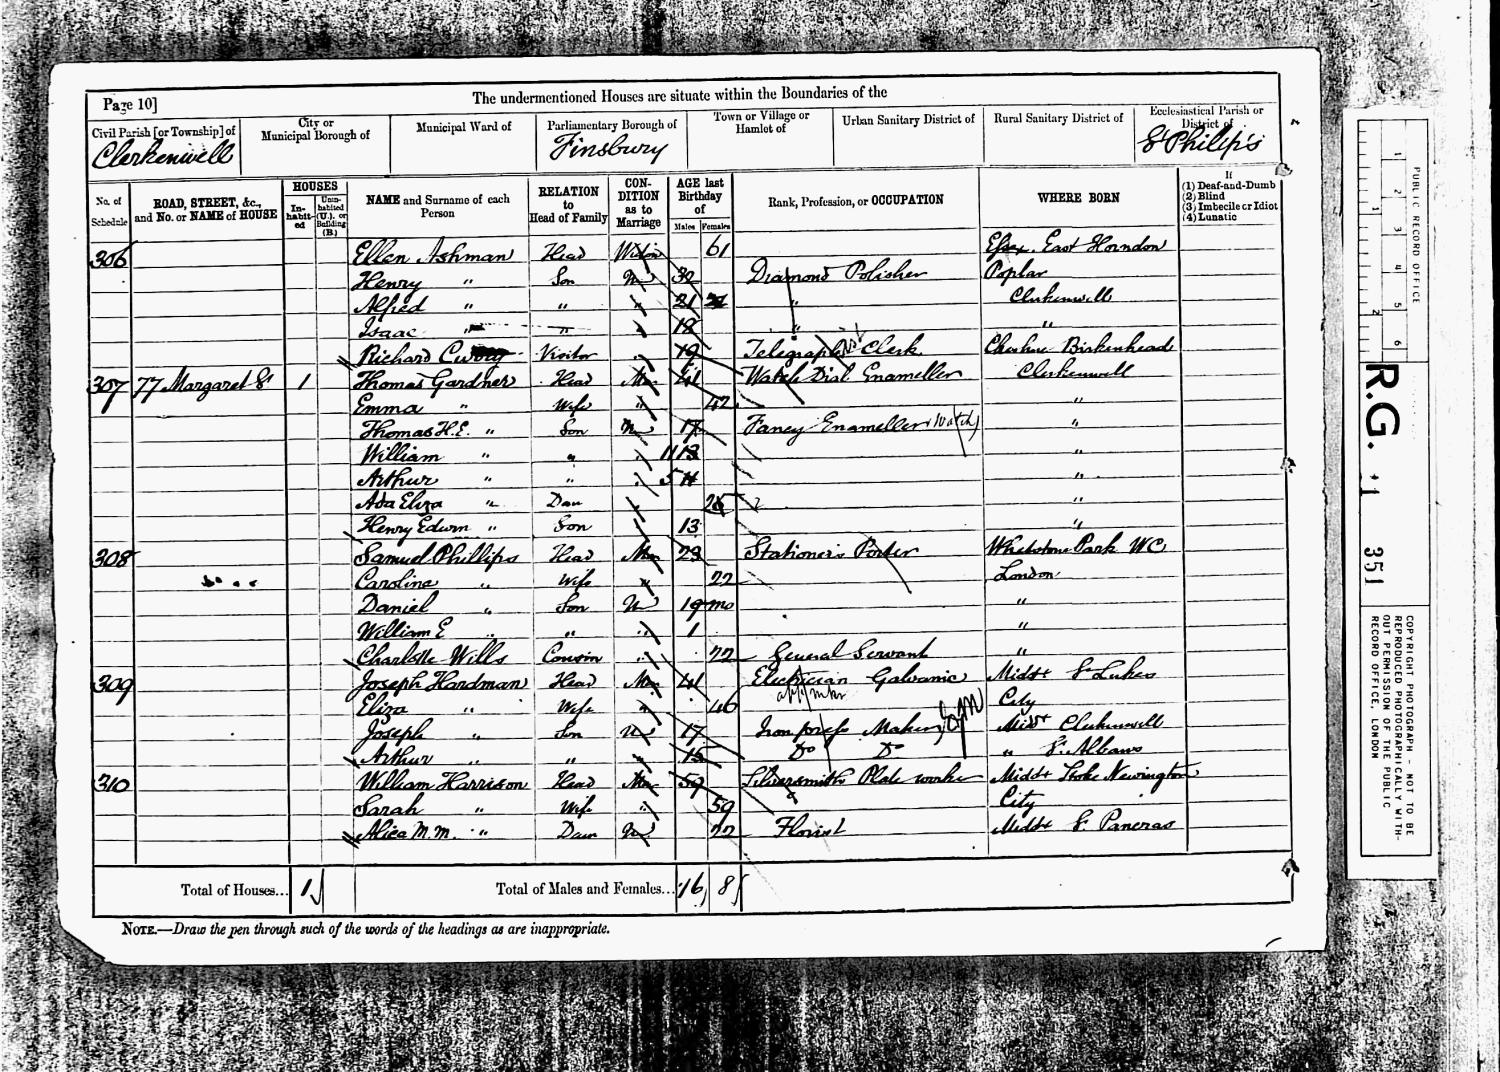 Page 10]
The undermentioned Houses are situate within the Boundaries of the
Civil Parish [or Township] of
Clerkenwell
City or
Municipal Borough of
Municipal Ward of
Parliamentary Borough of
Finsbury
Town or Village or
Hamlet of
Urban Sanitary District of
Rural Sanitary District of
Ecclesiastical Parish or
District of
St Philip's
No. of
Schedule
ROAD, STREET, &c.,
and No. or NAME of HOUSE
HOUSES
In-
habit-
ed
Unin-
habited
(U.), or
Building
(B.)
NAME and Surname of each
Person
RELATION
to
Head of Family
CON-
DITION
as to
Marriage
AGE last
Birthday
of
Males Females
Rank, Profession, or OCCUPATION
WHERE BORN
If
(1) Deaf-and-Dumb
(2) Blind
(3) Imbecile or Idiot
(4) Lunatic
306 Ellen Ashman Head Widow 61 Essex East Horndon
Henry " Son U 32 Diamond Polisher Poplar
Alfred " " " 21 " Clerkenwell
Isaac " " " 18 " "
Richard Visitor " 19 Telegraph Clerk Cheshire Birkenhead
307 77 Margaret St 1 Thomas Gardner Head Mar 41 Watch Dial Enameller Clerkenwell
Emma " Wife " 42 "
Thomas H.E. " Son U 17 Fancy Enameller (Watch) "
William " " " 11 "
Arthur " " " 5 "
Ada Eliza " Dau " "
Henry Edwin " Son " 13 "
308 Samuel Phillips Head Mar 23 Stationer's Porter Whetstone Park WC
Caroline " Wife " 22 London
Daniel " Son U 19 mo "
William E " " " 1 "
Charlotte Wills Cousin " 22 General Servant "
309 Joseph Hardman Head Mar 41 Electrician Galvanic Middx St Lukes
app mkr
Eliza " Wife " 46 City
Joseph " Son U 17 Iron Maker Middx Clerkenwell
Arthur " " " 15 Do Do " St Albans
310 William Harrison Head Mar 59 Silversmith Plate worker Middx Stoke Newington
Sarah " Wife " 59 City
Alice M.M. " Daur U 22 Florist Middx St Pancras
Total of Houses... 1
Total of Males and Females... 16 8
NOTE.—Draw the pen through such of the words of the headings as are inappropriate.
PUBLIC RECORD OFFICE
1 2 3 4 5 6
1 2
R.G. 11 351
COPYRIGHT PHOTOGRAPH - NOT TO BE
REPRODUCED PHOTOGRAPHICALLY WITH-
OUT PERMISSION OF THE PUBLIC
RECORD OFFICE, LONDON